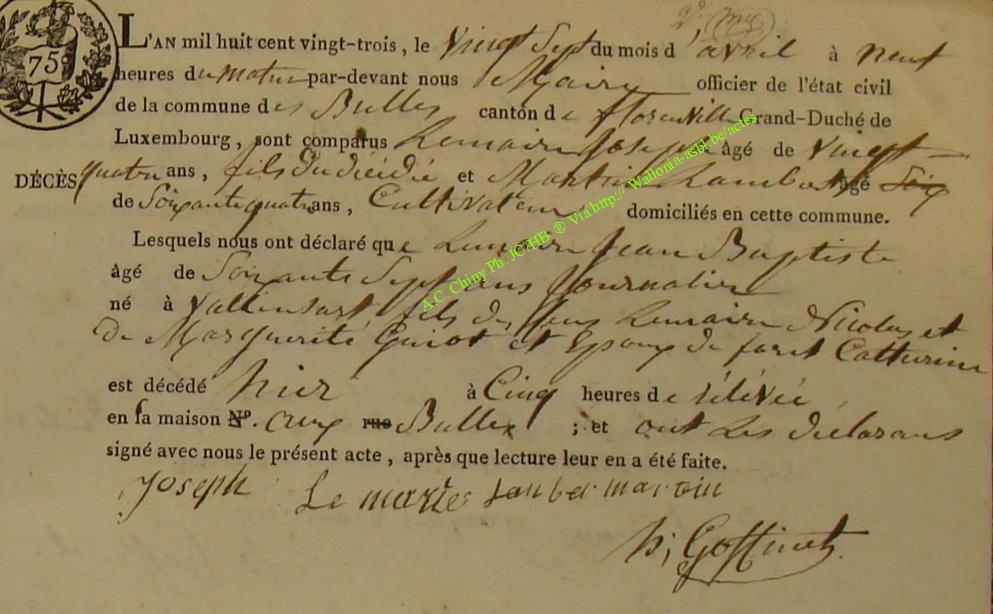 75
L'AN mil huit cent vingt-trois, le Vingt Sept du mois d'avril à neuf
heures du matin par-devant nous Maire officier de l'état civil
de la commune des Bulles canton de florenville Grand-Duché de
Luxembourg, sont comparus Lemaire Joseph âgé de Vingt
DÉCÈS quatre ans, fils du décédé et Martin Lambert âgé Soix
de Soixante quatre ans, Cultivateur domiciliés en cette commune.
Lesquels nous ont déclaré que Lemaire Jean Baptiste
âgé de Soixante Sept ans Journalier
né à Vallensart fils des feus Lemaire Nicolas et
de Marguerite Guiot et Epoux de foret Catherine
est décédé hier à Cinq heures de rélévée
en sa maison N°. aux rue Bulles ; et ont Les declarans
signé avec nous le présent acte, après que lecture leur en a été faite.
Joseph Le maire Lanber martin
Goffinet
A.C. Chiny Ph. JC HB ® Via http:// Wallonia-asbl.be/actes